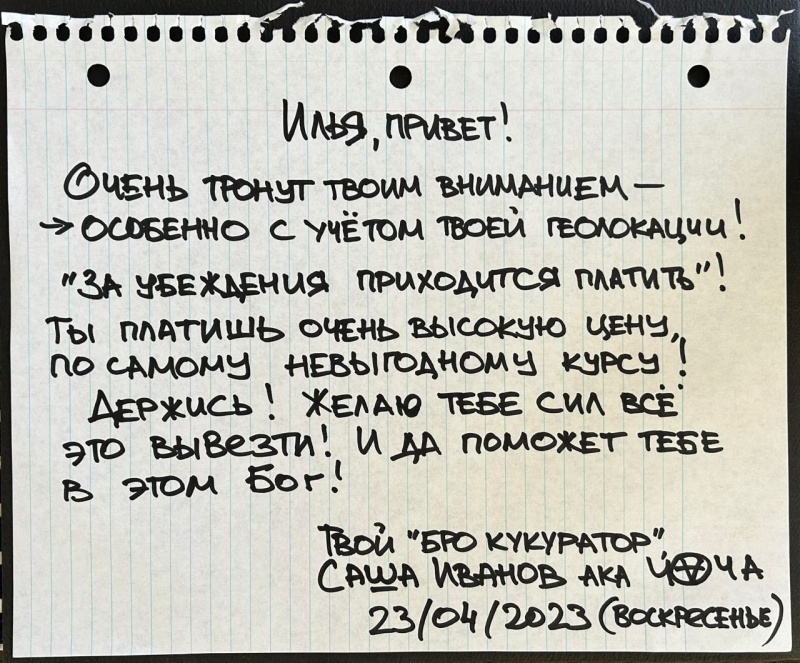 Илья, привет!
Очень тронут твоим вниманием —
→ особенно с учётом твоей геолокации!
"За убеждения приходится платить"!
Ты платишь очень высокую цену,
по самому невыгодному курсу!
Держись! Желаю тебе сил всё
это вывезти! И да поможет тебе
в этом Бог!
Твой "бро кукуратор"
Саша Иванов ака
23/04/2023 (воскресенье)